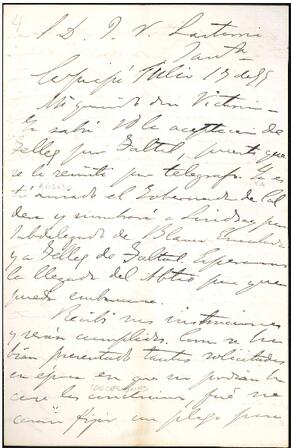 S. D. J. V. Lastarria
Santº
Copiapó Julio 13 de 85
Mi querido don Victorin
Ya sabrá Ud la aceptación de
Telleg por Taltal, puesto que
se la remití por telégrafo. Ya es
AVISADO
tá el Gobernador de Cal
dera y nombrará a
Subdelegado de Blanco Encalada
y a Telleg de Taltal. Esperamos
la llegada del para que
pueda embarcarse.
Recibí sus instrucciones
y serán cumplidas. Como se ha
bían presentado tantas solicitudes
en época en que no podían ha
CONCESIONES
cerse las fué ne
cesario fijar un plazo para